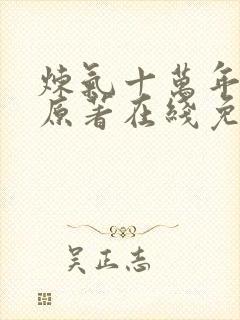 煉氣十萬年
原著在綫免
吴正志